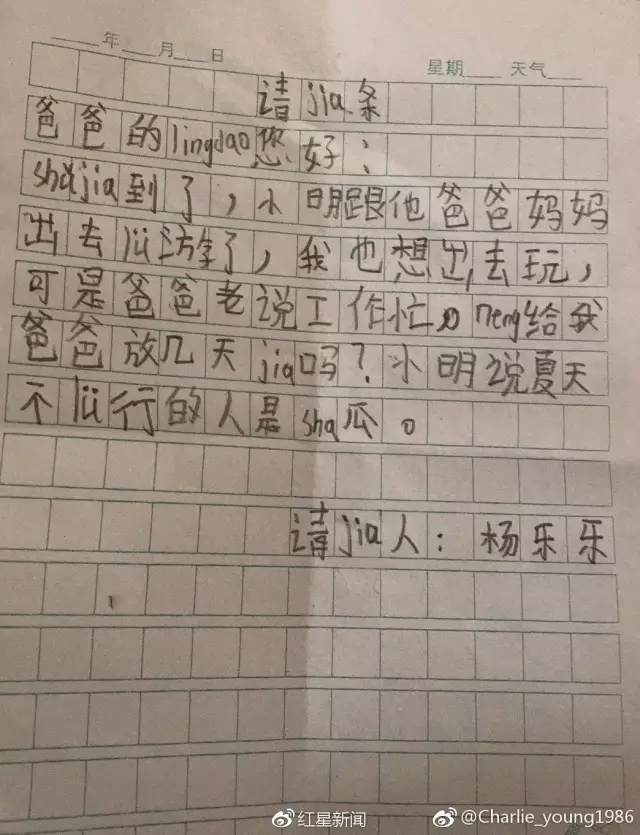 年 月 日 星期 天气
请jia条
爸爸的lingdao您好：
shǔjia到了，小明跟他爸爸妈妈
出去lü游了，我也想出去玩，
可是爸爸老说工作忙。neng给我
爸爸放几天jia吗？小明说夏天
不lü行的人是sha瓜。
请jia人：杨乐乐
红星新闻 @Charlie_young1986